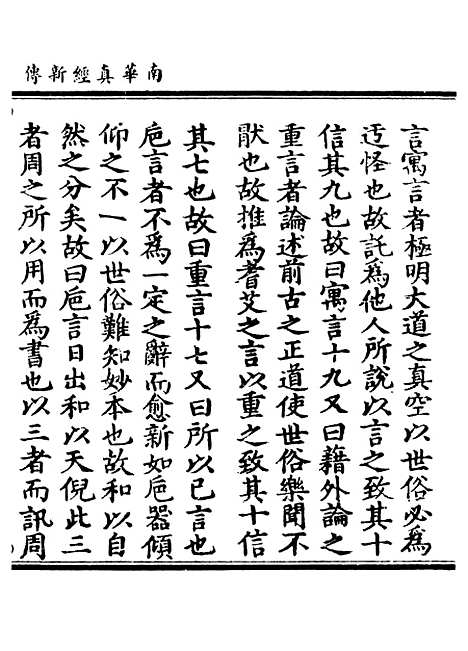 南華真經新傳
言寓言者極明大道之真空以世俗必爲
迃怪也故託爲他人所說以言之致其十
信其九也故曰寓言十九又曰藉外論之
重言者論述前古之正道使世俗樂聞不
猒也故推爲耆艾之言以重之致其十信
其七也故曰重言十七又曰所以已言也
巵言者不爲一定之辭而愈新如巵器傾
仰之不一以世俗難知妙本也故和以自
然之分矣故曰巵言日出和以天倪此三
者周之所以用而爲書也以三者而訊周